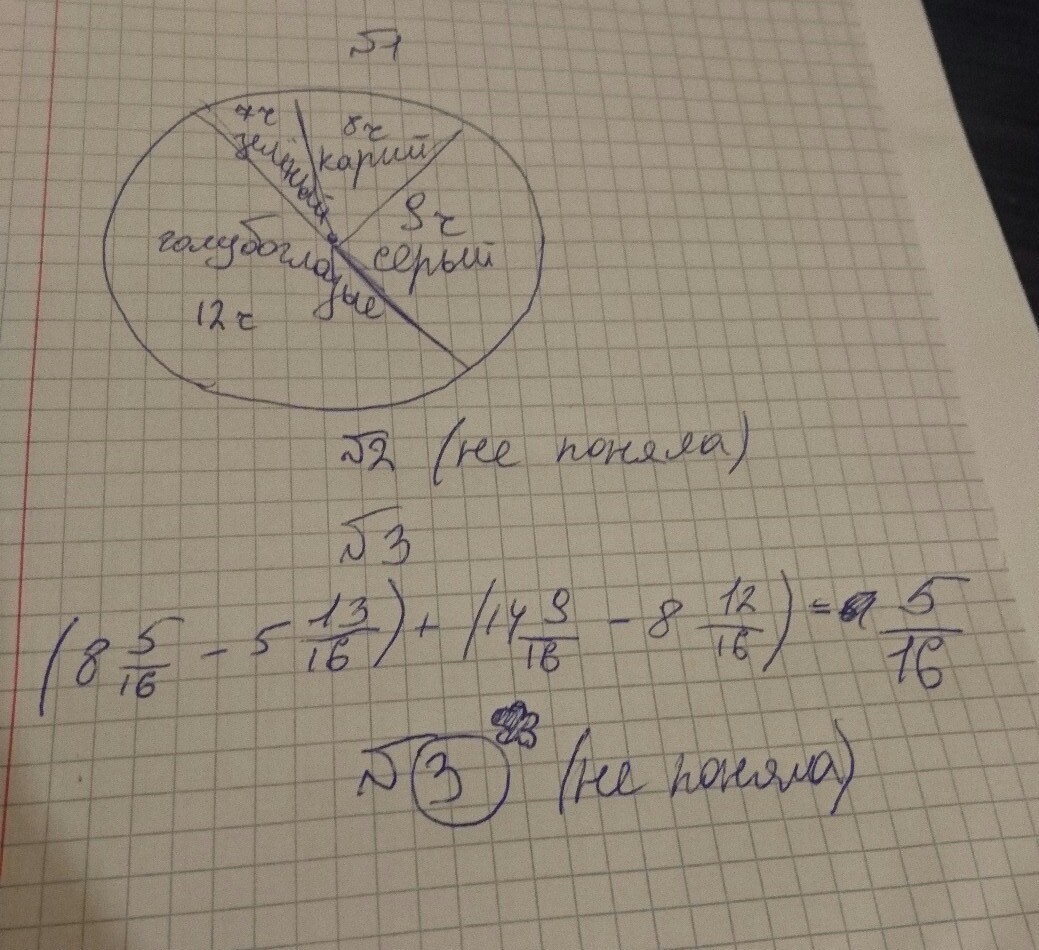 №1
7ч
зелёный
8ч
карий
9ч
серый
голубоглазые
12ч
№2 (не поняла)
№3
(8 5/16 - 5 13/16) + (14 9/16 - 8 12/16) = 5/16
№3 (не поняла)